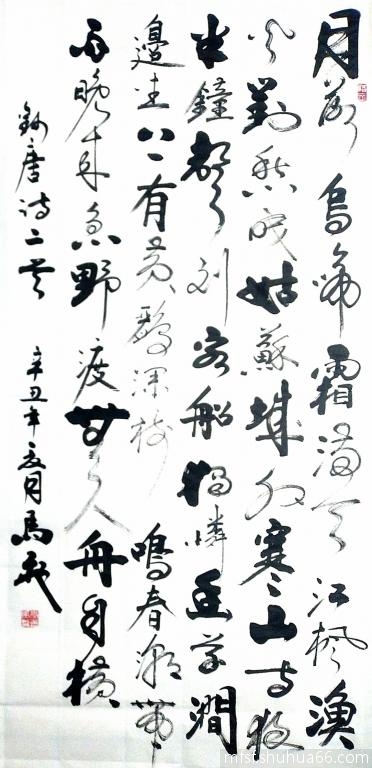 月落烏啼霜滿天江楓漁
火對愁眠姑蘇城外寒山寺夜
半鐘聲到客船獨憐幽草澗
邊生上有黃鸝深樹鳴春潮帶
雨晚來急野渡無人舟自橫
錄唐詩二首 辛丑年夏月馬
mfstshuhua66.com